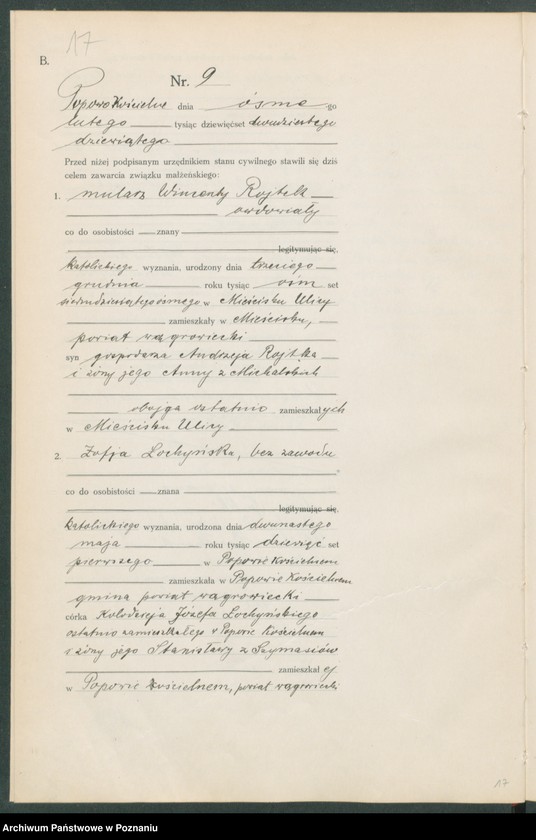 17
B.
Nr. 9
Popowo Kościelne dnia ósmego
lutego tysiąc dziewięćset dwudziestego
dziewiątego
Przed niżej podpisanym urzędnikiem stanu cywilnego stawili się dziś
celem zawarcia związku małżeńskiego:
1. mularz Wincenty Rojtek
owdowiały
co do osobistości znany
legitymując się,
katolickiego wyznania, urodzony dnia trzeciego
grudnia roku tysiąc ośm set
siedmdziesiątego ósmego w Mieścisku Ulicy
zamieszkały w Mieścisku,
powiat wągrowiecki
syn gospodarza Andrzeja Rojtka
i żony jego Anny z Michalskich
obojga ostatnio zamieszkałych
w Mieścisku Ulicy
2. Zofja Lochyńska, bez zawodu
co do osobistości znana
legitymując się,
katolickiego wyznania, urodzona dnia dwunastego
maja roku tysiąc dziewięć set
pierwszego w Popowie Kościelnem
zamieszkała w Popowie Kościelnem
gmina powiat wągrowiecki
córka Kołodzieja Józefa Lochyńskiego
ostatnio zamieszkałego w Popowie Kościelnem
i żony jego Stanisławy z Szymasiów
zamieszkałej
w Popowie Kościelnem, powiat wągrowiecki
17
Archiwum Państwowe w Poznaniu